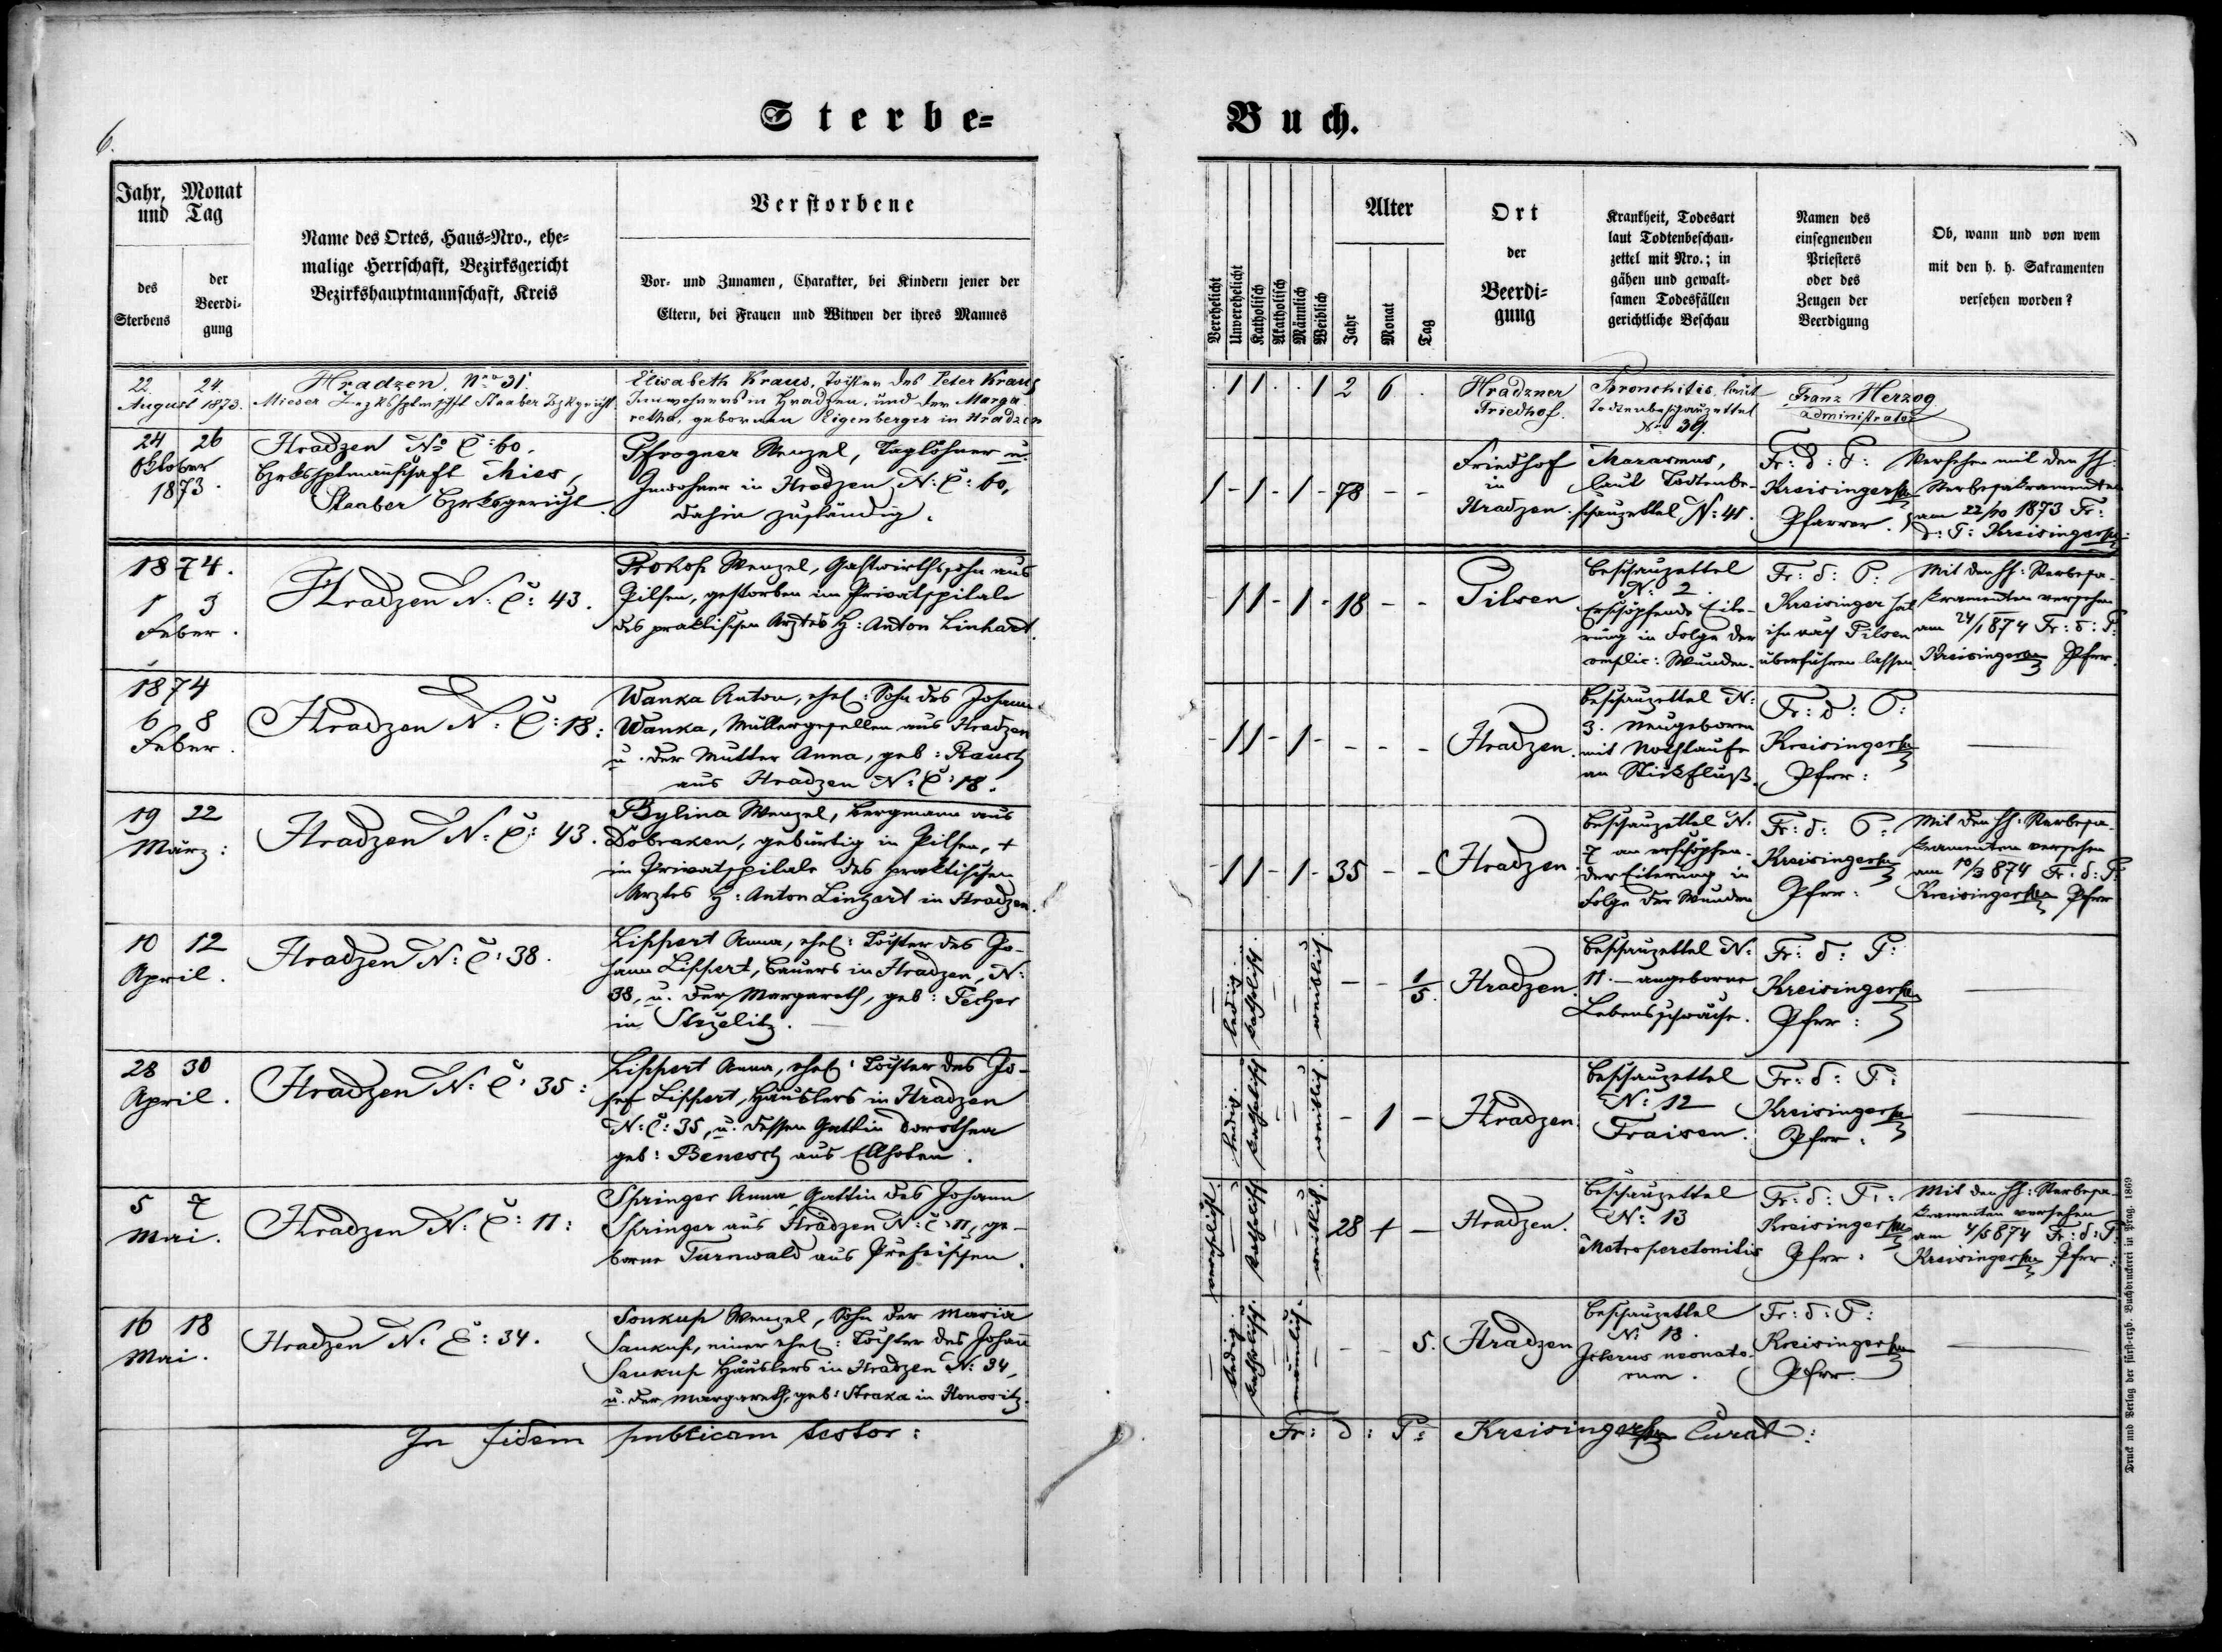 Sterbe=
Buch.
6.
Jahr, Monat
und Tag
des
Sterbens
der
Beerdi=
gung
Name des Ortes, Haus=Nro., ehe=
malige Herrschaft, Bezirksgericht
Bezirkshauptmannschaft, Kreis
Verstorbene
Vor= und Zunamen, Charakter, bei Kindern jener der
Eltern, bei Frauen und Witwen der ihres Mannes
Verehelicht
Unverehelicht
Katholisch
Akatholisch
Männlich
Weiblich
Alter
Jahr
Monat
Tag
Ort
der
Beerdi=
gung
Krankheit, Todesart
laut Todtenbeschau=
zettel mit Nro.; in
gähen und gewalt=
samen Todesfällen
gerichtliche Beschau
Namen des
einsegnenden
Priesters
oder des
Zeugen der
Beerdigung
Ob, wann und von wem
mit den h. h. Sakramenten
versehen worden?
22. 24.
August 1873.
Hradzen. Nro 31.
Mieser Bezkshptmschft Staaber Bzkgericht
Elisabeth Kraus, Tochter des Peter Kraus
Innwohners in Hradzen, und der Marga
retha, gebornen Eigenberger in Hradzen
1 1 1 2 6
Hradzner
Friedhof.
Bronchitis laut
Todtenbeschauzettel
Nro 39.
Franz Herzog
Administrator
24 26
Oktober
1873.
Hradzen No C: 60.
Bzrkshptmannschaft Mies,
Staaber Bzrksgericht.
Pfrogner Wenzel, Taglöhner u.
Inwohner in Hradzen N: C: 60,
dahin zuständig.
1 - 1 - 1 - 78 - -
Friedhof
in
Hradzen.
Marasmus,
laut Todtenbe-
schauzettel N: 41.
Fr: d: P:
Kreisinger
Pfarrer.
Versehen mit den hh:
Sterbesakramenten
am 22/10 1873 Fr:
d: P: Kreisinger
1874.
1 3
Feber.
Hradzen N: C: 43.
Prokop Wenzel, Gastwirthssohn aus
Pilsen, gestorben im Privatspitale
des praktischen Arztes H: Anton Linhart.
- 1 1 - 1 - 18 - -
Pilsen
Beschauzettel
N: 2.
Erschöpfende Eite-
rung in Folge der
complic: Wunden.
Fr: d: P:
Kreisinger hat
ihn nach Pilsen
überführen lassen.
Mit den hh: Sterbesa-
kramenten versehen
am 24/1 874 Fr: d: P:
Kreisinger Pfrr.
1874
6 8
Feber.
Hradzen N: C: 18:
Wanka Anton, ehel: Sohn des Johann
Wanka, Müllergesellen aus Hradzen
u. der Mutter Anna, geb: Rausch
aus Hradzen N: C: 18.
- 1 1 - 1 - - - -
Hradzen.
Beschauzettel N:
3. Neugeboren
mit Nothtaufe
an Stickfluß.
Fr: d: P:
Kreisinger
Pfrr:
19 22
März:
Hradzen N: C: 43.
Bylina Wenzel, Bergmann aus
Dobraken, gebürtig in Pilsen, +
im Privatspitale des praktischen
Arztes H: Anton Linhart in Hradzen.
- 1 1 - 1 - 35 - -
Hradzen
Beschauzettel N:
7 an erschöpfen-
der Eiterung in
Folge der Wunden
Fr: d: P:
Kreisinger
Pfrr:
Mit den hh: Sterbesa-
kramenten versehen
am 10/3 874 Fr: d: P:
Kreisinger Pfrr
10 12
April.
Hradzen N: C: 38.
Lippert Anna, ehel: Tochter des Jo-
hann Lippert, Bauers in Hradzen, N:
38, u. der Margareth, geb: Fecher
in Strzelitz.
ledig. katholisch. weiblich.
- - 1/5.
Hradzen.
Beschauzettel N:
11. - angeborne
Lebensschwäche.
Fr: d: P:
Kreisinger
Pfrr:
28 30
April.
Hradzen N: C: 35:
Lippert Anna, ehel: Tochter des Jo-
sef Lippert, Häuslers in Hradzen
N: C: 35, u. dessen Gattin Dorothea
geb: Benesch aus Ellhoten.
ledig. katholisch weiblich.
- 1 -
Hradzen.
Beschauzettel
N: 12
Fraisen.
Fr: d: P:
Kreisinger
Pfrr:
5 7
Mai.
Hradzen N: C: 11:
Springer Anna, Gattin des Johann
Springer aus Hradzen N: C: 11, ge-
borne Turnwald aus
verehelicht. katholisch weiblich.
28 + -
Hradzen.
Beschauzettel
N: 13
Metroperetonitis
Fr: d: P:
Kreisinger
Pfrr:
Mit den hh: Sterbesa-
kramenten versehen
am 4/5 874 Fr: d: P:
Kreisinger Pfrr:
16 18
Mai.
Hradzen N: C: 34.
Soukup Wenzel, Sohn der Maria
Saukup, einer ehel: Tochter des Johann
Saukup Häuslers in Hradzen N: 34,
u. der Margareth, geb: Straka in Honositz.
ledig. katholisch. männlich.
- - 5.
Hradzen
Beschauzettel
N: 18.
Icterus neonato-
rum.
Fr: d: P:
Kreisinger
Pfrr.
In fidem publicam testor:
Fr: d: P: Kreisinger Curat:
Druck und Verlag der fürst=erzb. Buchdruckerei in Prag. 1869